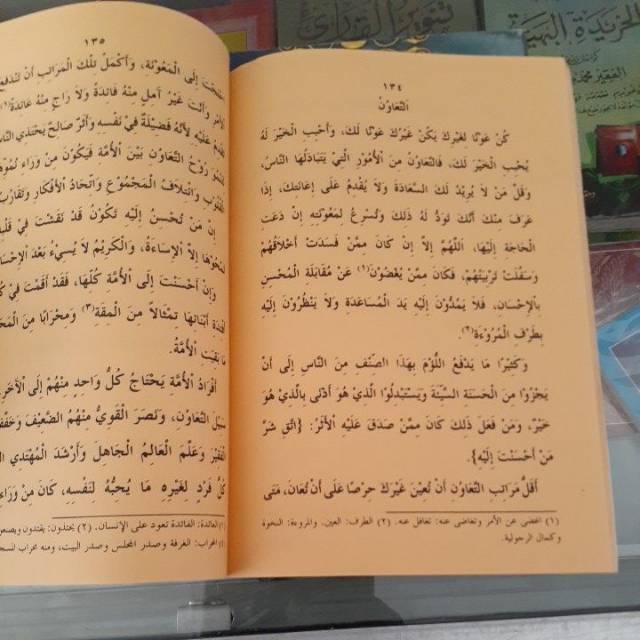 تنوير القاري
الخريدة البهية
١٣٤
التعاون
كُنْ عَونًا لغيركَ يَكُنْ غَيرُكَ عَونًا لَكَ، وَأَحْبِبِ الْخَيْرَ لَهُ
يُحْبِبِ الْخَيْرَ لَكَ، فَالتَّعَاوُنُ مِنَ الْأُمُورِ الَّتِيْ يَتَبَادَلُهَا النَّاسُ،
وَقَلَّ مَنْ لَا يُرِيْدُ لَكَ السَّعَادَةَ وَلَا يُقْدِمُ عَلَى إِعَانَتِكَ، إِذَا
عَرَفَ مِنْكَ أَنَّكَ تَوَدُّ لَهُ ذلِكَ وَتُسْرِعُ لِمَعُوْنَتِهِ إِنْ دَعَتِ
الْحَاجَةُ إِلَيْهَا، اَللّهُمَّ إِلَّا إِنْ كَانَ مِمَّنْ فَسَدَتْ أَخْلَاقُهُمْ
وَسَفُلَتْ تَرْبِيَتُهُمْ، فَكَانَ مِمَّنْ يُغْضُوْنَ(١) عَنْ مُقَابَلَةِ الْمُحْسِنِ
بِالْإِحْسَانِ، فَلَا يَمُدُّوْنَ إِلَيْهِ يَدَ الْمُسَاعَدَةِ وَلَا يَنْظُرُوْنَ إِلَيْهِ
بِطَرْفِ الْمُرُوْءَةِ(٢).
وَكَثِيْرًا مَا يَدْفَعُ اللُّؤْمُ بِهذَا الصِّنْفِ مِنَ النَّاسِ إِلَى أَنْ
يَجْزُوْا مِنَ الْحَسَنَةِ السَّيِّئَةَ وَيَسْتَبْدِلُوْا الَّذِيْ هُوَ أَدْنَى بِالَّذِيْ هُوَ
خَيْرٌ، وَمَنْ فَعَلَ ذلِكَ كَانَ مِمَّنْ صَدَقَ عَلَيْهِ الْأَثَرُ: {اتَّقِ شَرَّ
مَنْ أَحْسَنْتَ إِلَيْهِ}.
أَقَلُّ مَرَاتِبِ التَّعَاوُنِ أَنْ تُعِيْنَ غَيْرَكَ حِرْصًا عَلَى أَنْ تُعَانَ، مَتَى
(١) أغضى عن الأمر وتغاضى عنه: تغافل عنه. (٢) الطرف: العين. والمروءة: النخوة
وكمال الرجولية.
١٣٥
إِلَى الْمَعُوْنَةِ، وَأَكْمَلُ تِلْكَ الْمَرَاتِبِ أَنْ تَنْدَفِعَ
وَأَنْتَ غَيْرُ آمِلٍ مِنْهُ فَائِدَةً وَلَا رَاجٍ مِنْهُ عَائِدَةً(١)
عَلَيْهِ لِأَنَّهُ فَضِيْلَةٌ فِيْ نَفْسِهِ وَأَثَرٌ صَالِحٌ يَحْتَذِي النَّاسُ
رُوْحُ التَّعَاوُنِ بَيْنَ الْأُمَّةِ فَيَكُوْنُ مِنْ وَرَاءِ
وَائْتِلَافُ الْمَجْمُوْعِ وَاتِّحَادُ الْأَفْكَارِ وَتَقَارُبُ
إِنَّ مَنْ تُحْسِنُ إِلَيْهِ تَكُوْنُ قَدْ نَقَشْتَ فِيْ قَلْبِهِ
إِلَّا الْإِسَاءَةُ، وَالْكَرِيْمُ لَا يُسِيْءُ بَعْدَ الْإِحْسَانِ
وَإِنْ أَحْسَنْتَ إِلَى الْأُمَّةِ كُلِّهَا، فَقَدْ أَقَمْتَ فِيْ
أَبْنَائِهَا تِمْثَالًا مِنَ الْمِقَةِ(٢) وَمِحْرَابًا مِنَ
مَا بَقِيَتِ الْأُمَّةُ.
أَفْرَادُ الْأُمَّةِ يَحْتَاجُ كُلُّ وَاحِدٍ مِنْهُمْ إِلَى الْآخَرِ
سَبِيْلَ التَّعَاوُنِ، وَنَصَرَ الْقَوِيُّ مِنْهُمُ الضَّعِيْفَ
الْفَقِيْرَ وَعَلَّمَ الْعَالِمُ الْجَاهِلَ وَأَرْشَدَ الْمُهْتَدِي
كُلُّ فَرْدٍ لِغَيْرِهِ مَا يُحِبُّهُ لِنَفْسِهِ، كَانَ مِنْ وَرَاءِ
(١) العائدة: الفائدة تعود على الإنسان. (٢) يحتذون: يقتدون
المحراب: الغرفة وصدر المجلس وصدر البيت، ومنه محراب المسجد